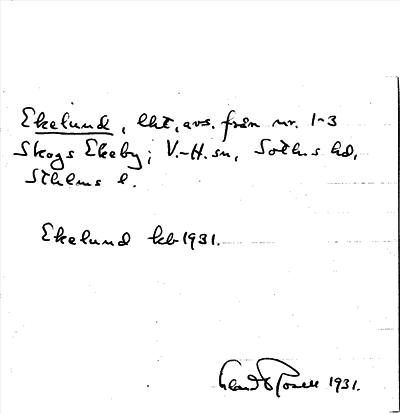 Ekelund, lht, avs. från nr. 1-3
Skogs Ekeby; V.-H. sn, Sotholms hd,
Sthlms l.
Ekelund kb 1931.
1931.